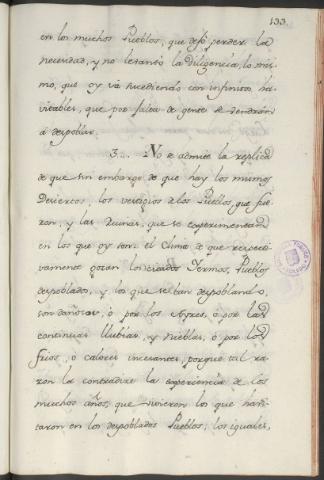 133.
en los muchos Pueblos, que dejó perder la
necesidad, y no levantó la diligencia, lo mis-
mo, que oy va sucediendo con infinitos ha-
vitables, que por falta de gente se vendrán
á despoblar.
3... No se admita la replica
de que sin embargo de que hay los mismos
Desiertos, los vestigios de los Pueblos que fue-
ron, y las Ruinas, que se experimentan
en los que oy son: el Clima de que respecti-
vamente gozan los citados Yermos, Pueblos
despoblados, y los que se van despoblando,
son dañosas, ó por los Ayres, ó por las
continuas llubias, y nieblas, ó por los
frios, ó calores incesantes, porque tal ra-
zon la contradice la experiencia de los
muchos años, que vivieron los que havi-
taron en los despoblados Pueblos, los iguales,